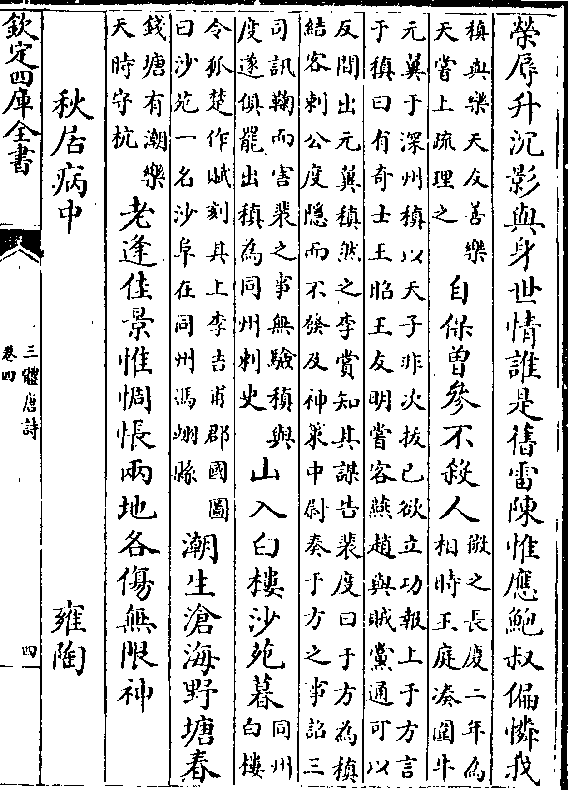 榮辱升沉影與身世情誰是舊雷陳惟應鮑叔偏憐我
稹與樂天友善樂
天嘗上疏理之
自保曾參不殺人
微之長慶二年為
相時王庭湊圍牛
元翼于深州稹以天子非次拔己欲立功報上于方言
于稹曰有奇士王昭王友明嘗客燕趙與賊黨通可以
反間出元翼稹然之李賞知其謀告裴度曰于方為稹
結客刺公度隱而不發及神策中尉奏于方之事詔三
司訊鞠而害裴之事無驗稹與
度遂俱罷出稹為同州刺史
山入白樓沙苑暮
同州
白樓
令狐楚作賦刻其上李吉甫郡國圖
曰沙苑一名沙阜在同州馮翊縣
潮生滄海野塘春
錢塘有潮樂
天時守杭
老逢佳景惟惆悵兩地各傷無限神
秋居病中
雍陶
欽定四庫全書
三體唐詩
卷四
四